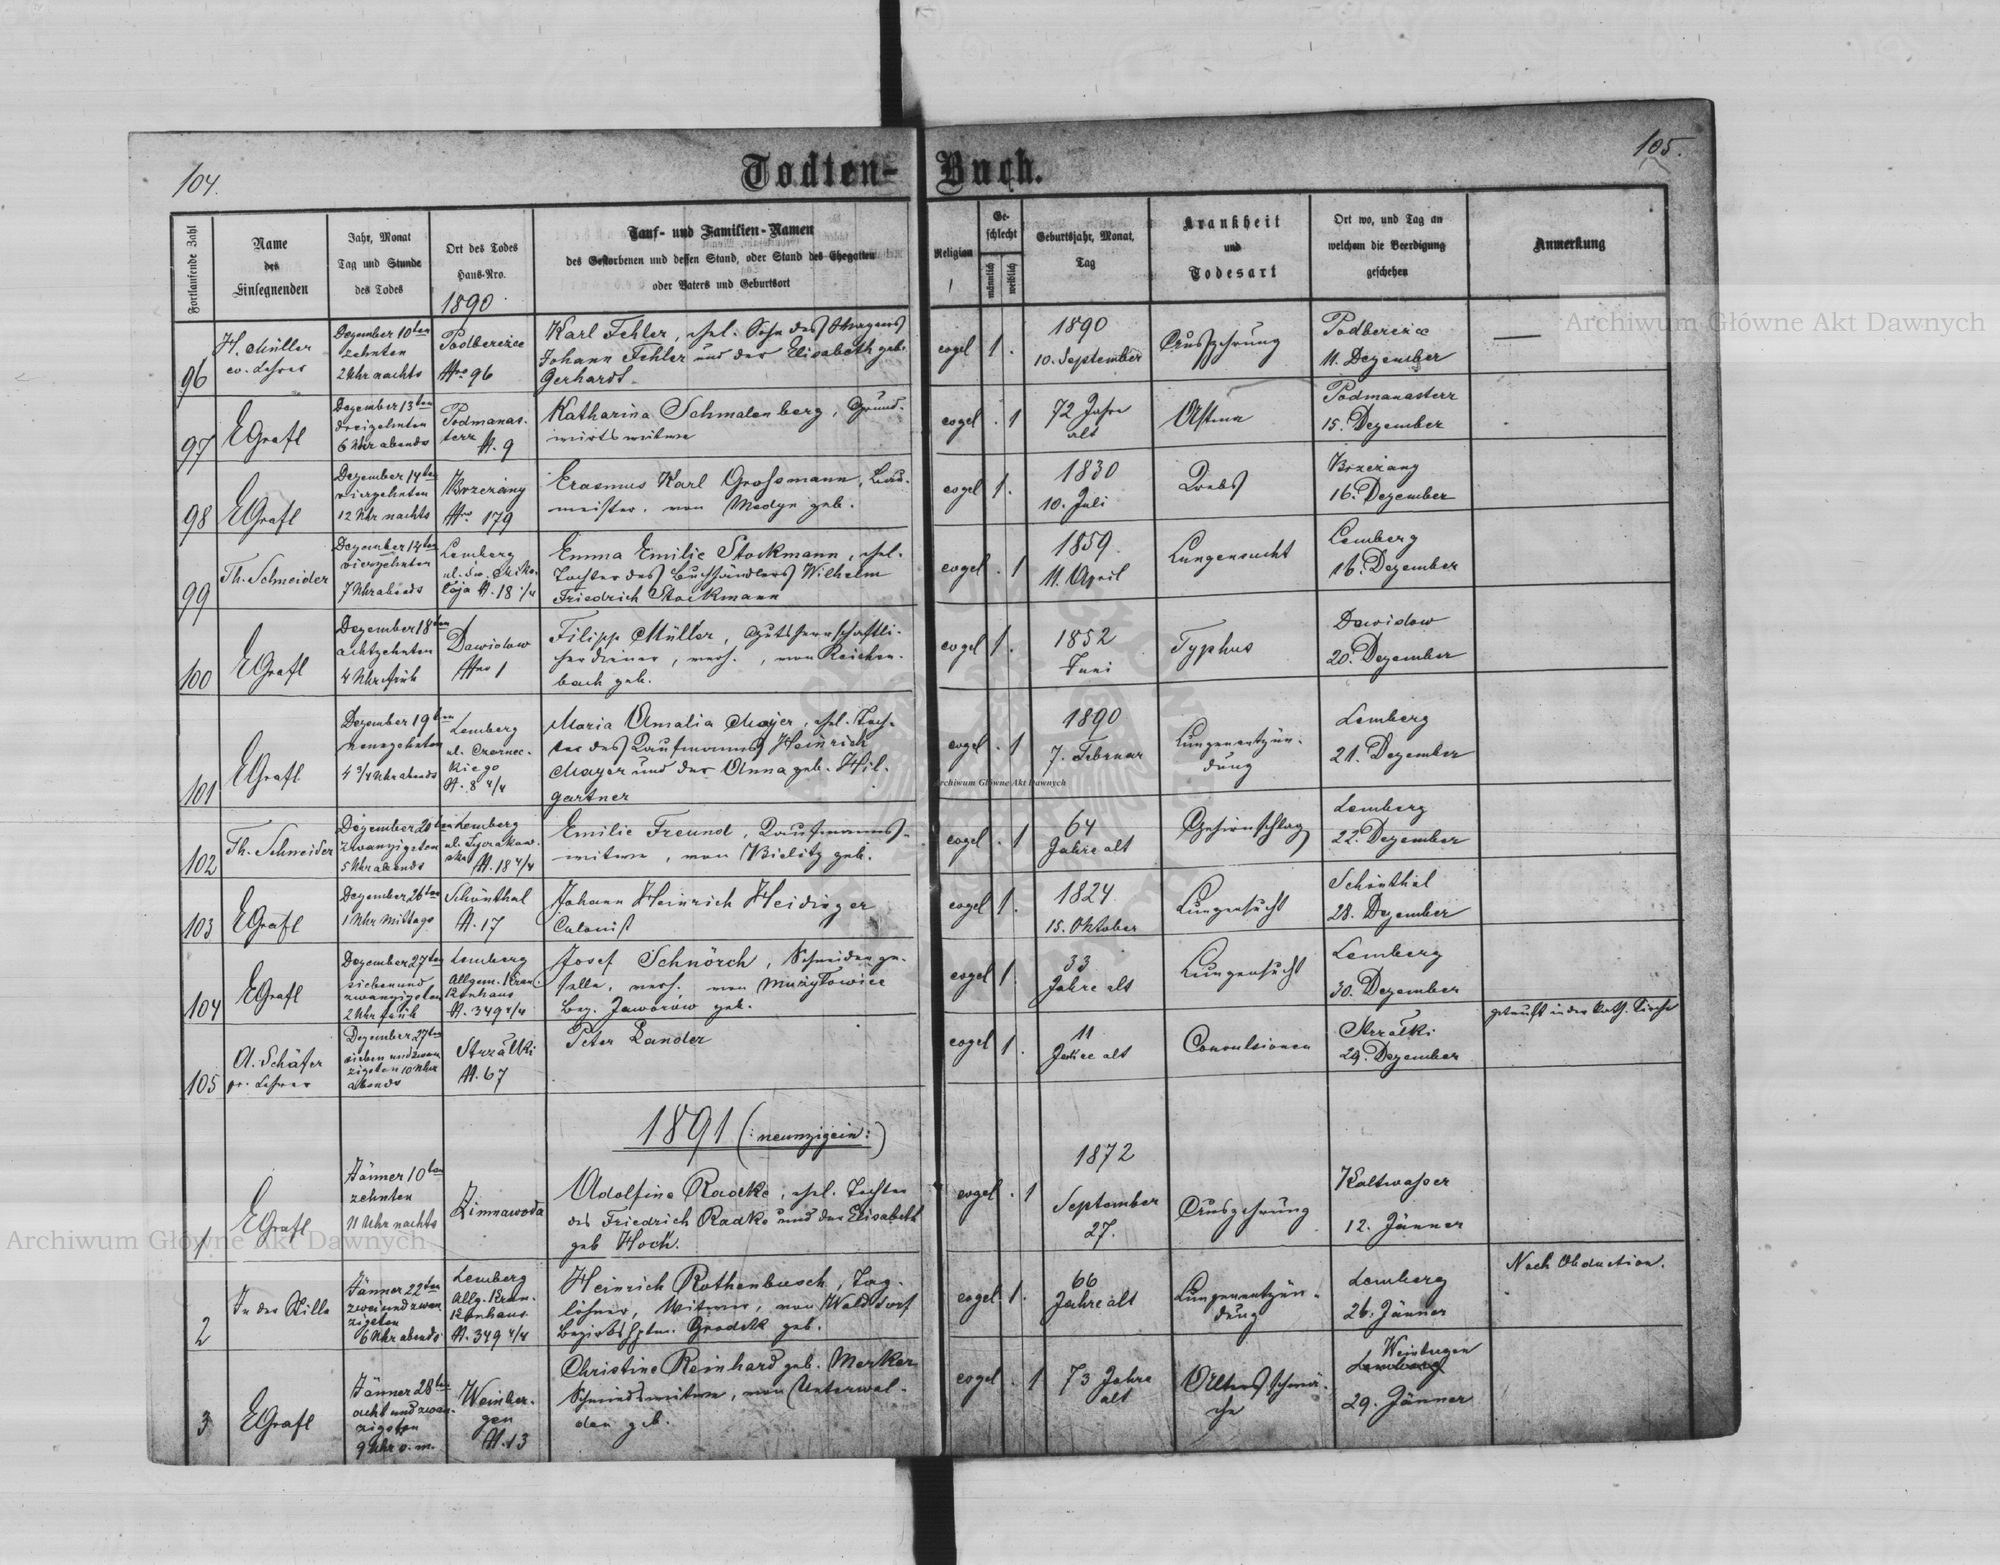 104.
105.
Todten-Buch.
Fortlaufende Zahl
Name
des
Einsegnenden
Jahr, Monat
Tag und Stunde
des Todes
Ort des Todes
Haus-Nro.
1890
Tauf- und Familien-Namen
des Gestorbenen und dessen Stand, oder Stand des Ehegatten
oder Vaters und Geburtsort
Religion
Geschlecht
männlich
weiblich
Geburtsjahr, Monat,
Tag
Krankheit
und
Todesart
Ort wo, und Tag an
welchem die Beerdigung
geschehen
Anmerkung
96
H. Müller
ev. Lehrer
Dezember 10ten
zehnten
2 Uhr nachts
Podberezce
Nro 96
Karl Fehler, ehel. Sohn des
Johann Fehler und der Elisabeth geb.
Gerhardt.
evgel
1.
1890
10. September
Auszehrung
Podberezce
11. Dezember
—
97
EGrafl
Dezember 13ten
dreizehnten
6 Uhr abends
Podmanas-
terz
N. 9
Katharina Schmalenberg, Grund-
wirtswitwe
evgel
. 1
72 Jahre
alt
Astma
Podmanasterz
15. Dezember
98
EGrafl
Dezember 14ten
vierzehnten
12 Uhr nachts
Brzezany
Nro 179
Erasmus Karl Grossmann, Bau-
meister, von Modyn geb.
evgel
1.
1830
10. Juli
Krebs
Brzezany
16. Dezember
99
Th. Schneider
Dezember 14ten
vierzehnten
7 Uhr abends
Lemberg
ul. Sw. Miko-
łaja N. 18 1/4
Emma Emilie Stockmann, ehel.
Tochter des Buchhändlers Wilhelm
Friedrich Stockmann
evgel
. 1
1859.
11. April
Lungensucht
Lemberg
16. Dezember
100
EGrafl
Dezember 18ten
achtzehnten
4 Uhr früh
Dawidow
Nro 1
Filipp Müller, Gutsherrschaftli-
cher Diener, verh., von Reichen-
bach geb.
evgel
1.
1852
Juni
Typhus
Dawidow
20. Dezember
101
EGrafl
Dezember 19ten
neunzehnten
4 3/4 Uhr abends
Lemberg
ul. Czarnec-
kiego
N. 8 4/4
Maria Amalia Mayer, ehel. Toch-
ter des Kaufmanns Heinrich
Mayer und der Anna geb. Hil-
gartner
evgel
. 1
1890
7. Februar
Lungenentzün-
dung
Lemberg
21. Dezember
102
Th. Schneider
Dezember 20ten
zwanzigsten
5 Uhr abends
Lemberg
N. 18 4/4
Emilie Freund, Kaufmanns-
witwe, von Bielitz geb.
evgel
. 1
64
Jahre alt
Gehirnschlag
Lemberg
22. Dezember
103
EGrafl
Dezember 26ten
1 Uhr Mittags
Schönthal
N. 17
Johann Heinrich Heidinger
Colonist
evgel
1.
1824
15. Oktober
Lungensucht
Schönthal
28. Dezember
104
EGrafl
Dezember 27ten
sieben und
zwanzigsten
2 Uhr früh
Lemberg
Allgem. Kran-
kenhaus
N. 349 4/4
Josef Schnörch, Schneiderge-
selle, verh. von Mużyłowice
Bez. Jaworów geb.
evgel
1.
33
Jahre alt
Lungensucht
Lemberg
30. Dezember
105
A. Schäfer
ev. Lehrer
Dezember 27ten
sieben und zwan
zigsten 10 Uhr
abends
Strzałki
N. 67
Peter Kandler
evgel
1.
11
Jahre alt
Convulsionen
Strzałki
29. Dezember
getauft in der kath. Kirche
1891 (: neunzigein :)
1
EGrafl
Jänner 10ten
zehnten
11 Uhr nachts
Zimnawoda
Adolfine Radke, ehel. Tochter
des Friedrich Radke und der Elisabeth
geb Hoch.
evgel
. 1
1872
September
27.
Auszehrung
Kaltwasser
12. Jänner
2
In der Stille
Jänner 22ten
zwei und zwan
zigsten
6 Uhr abends
Lemberg
Allg. Kran-
kenhaus
N. 349 4/4
Heinrich Rothenbusch, Tag-
löhner, Witwer, von Walddorf
Bezirkshptm. Grodek geb.
evgel.
1.
66
Jahre alt
Lungenentzün-
dung
Lemberg
26. Jänner
Nach Obduction.
3
EGrafl
Jänner 28ten
acht und zwan-
zigsten
9 Uhr v. m.
Weinber-
gen
N. 13
Christine Reinhard geb. Merker
Schmiedswitwe, von Unterwal-
den geb.
evgel
. 1
73 Jahre
alt
Altersschwä-
che
Weinbergen
Lemberg
29. Jänner
Archiwum Główne Akt Dawnych
Archiwum Główne Akt Dawnych
Archiwum Główne Akt Dawnych